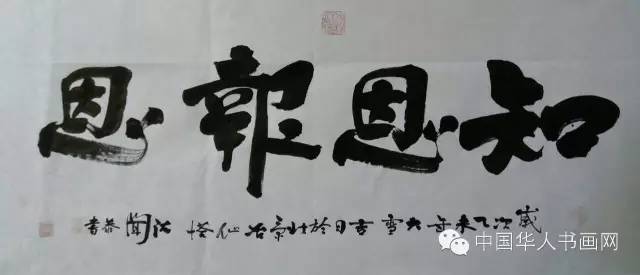 知恩報恩
歲次乙未年大雪吉日於北京冶仙塔 聞 恭書
中国华人书画网